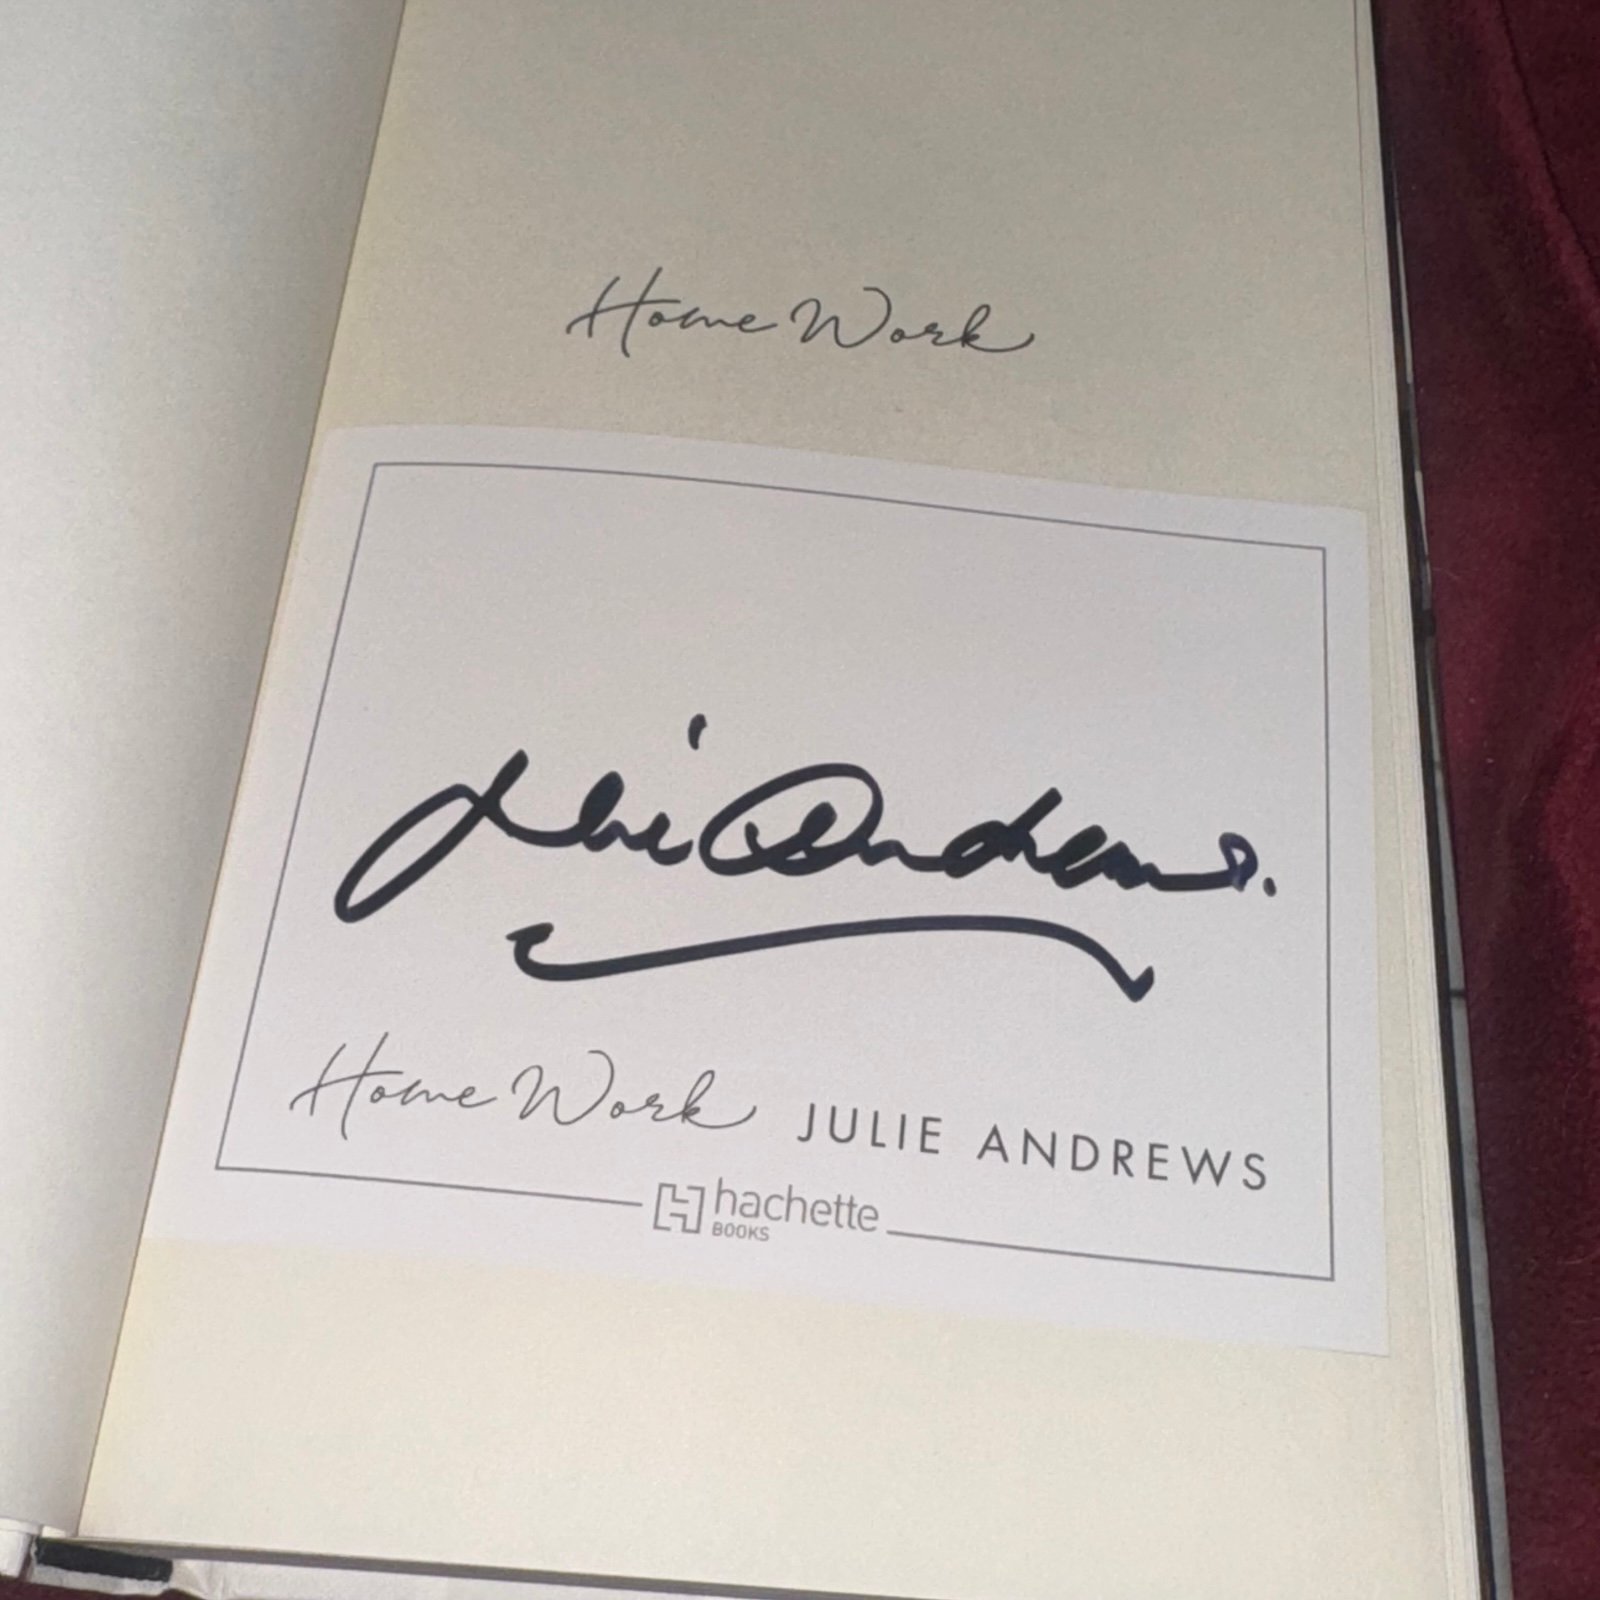 Home Work
Julie Andrews.
Home Work JULIE ANDREWS
hachette
BOOKS